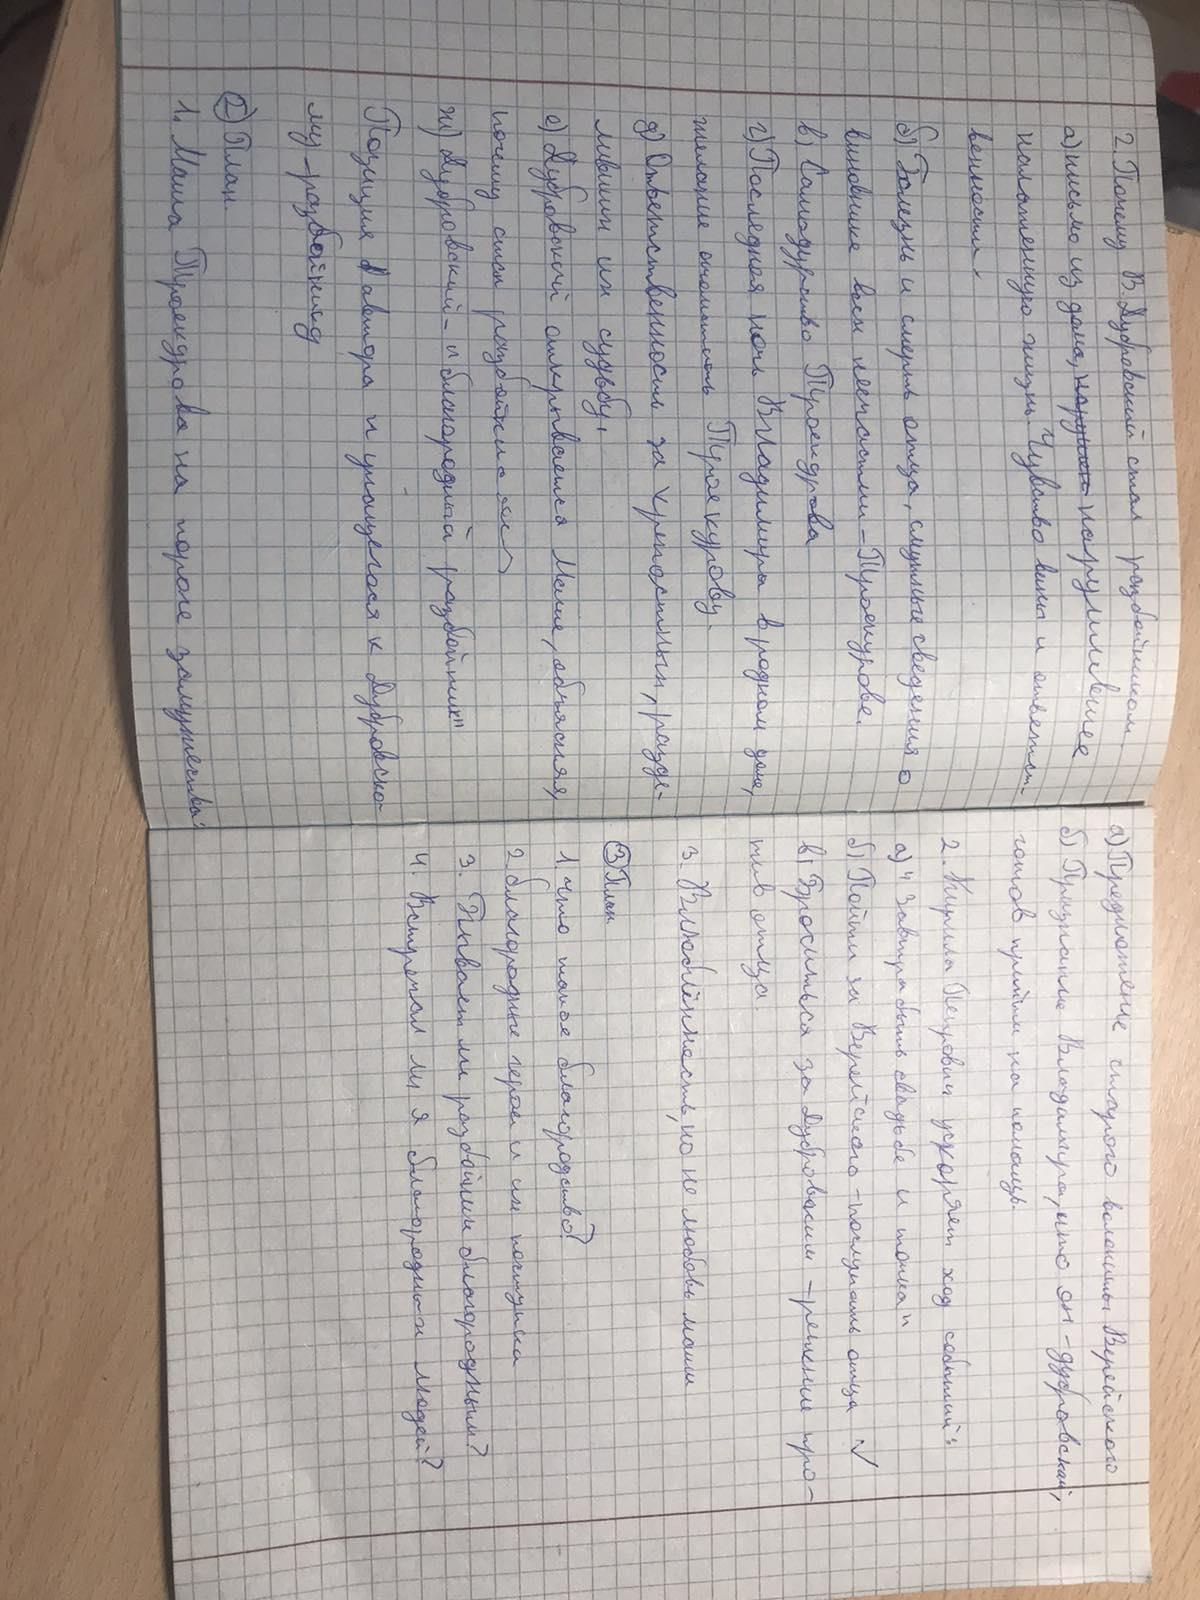 2. Почему В. Дубровский стал разбойником
а) письмо из дома, нарушившее
налаженную жизнь. Чувство вины и ответст-
венности.
б) Болезнь и смерть отца, смутные сведения о
виновнике всех несчастий - Троекурове.
в) Самодурство Троекурова
г) Последняя ночь Владимира в родном доме,
желание отомстить Троекурову.
д) Ответственность за крепостных, разде-
ливших их судьбу,
е) Дубровский открывается Маше, объясняя,
почему стал разбойником
ж) Дубровский - и благородный разбойник"
Позиция автора и учащегося к Дубровско-
му-разбойнику
② План.
1. Маша Троекурова на пороге замужества:
а) Предложение старого волокиты Верейского
б) Признание Владимира, что он - дубровский,
готов прийти на помощь.
2. Кирилы Петрович ускоряет ход событий:
а) "Завтра быть свадьбе и точка"
б) Пойти за Верейского - послушать отца √
в) Броситься за Дубровским - решение про-
тив отца.
3. Влюблённость, но не любовь маши
③ План
1. Что такое благородство?
2. благородные герои и их поступки
3. Бывает ли разбойник благородным?
4. Встречал ли я благородных людей?